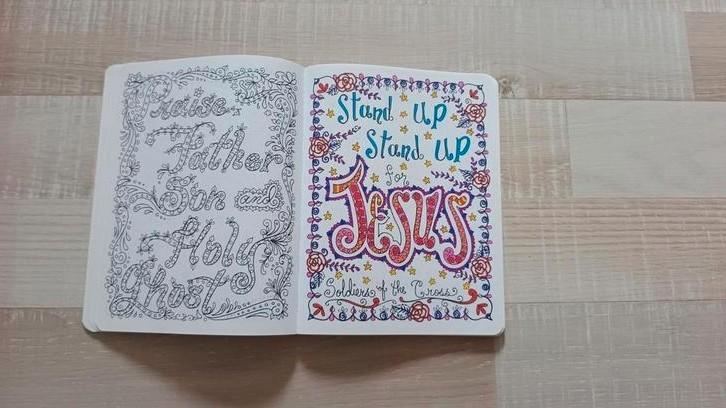 Praise
Father
Son and
Holy
Ghost
Stand up
Stand up
for
Jesus
Soldiers of the Cross